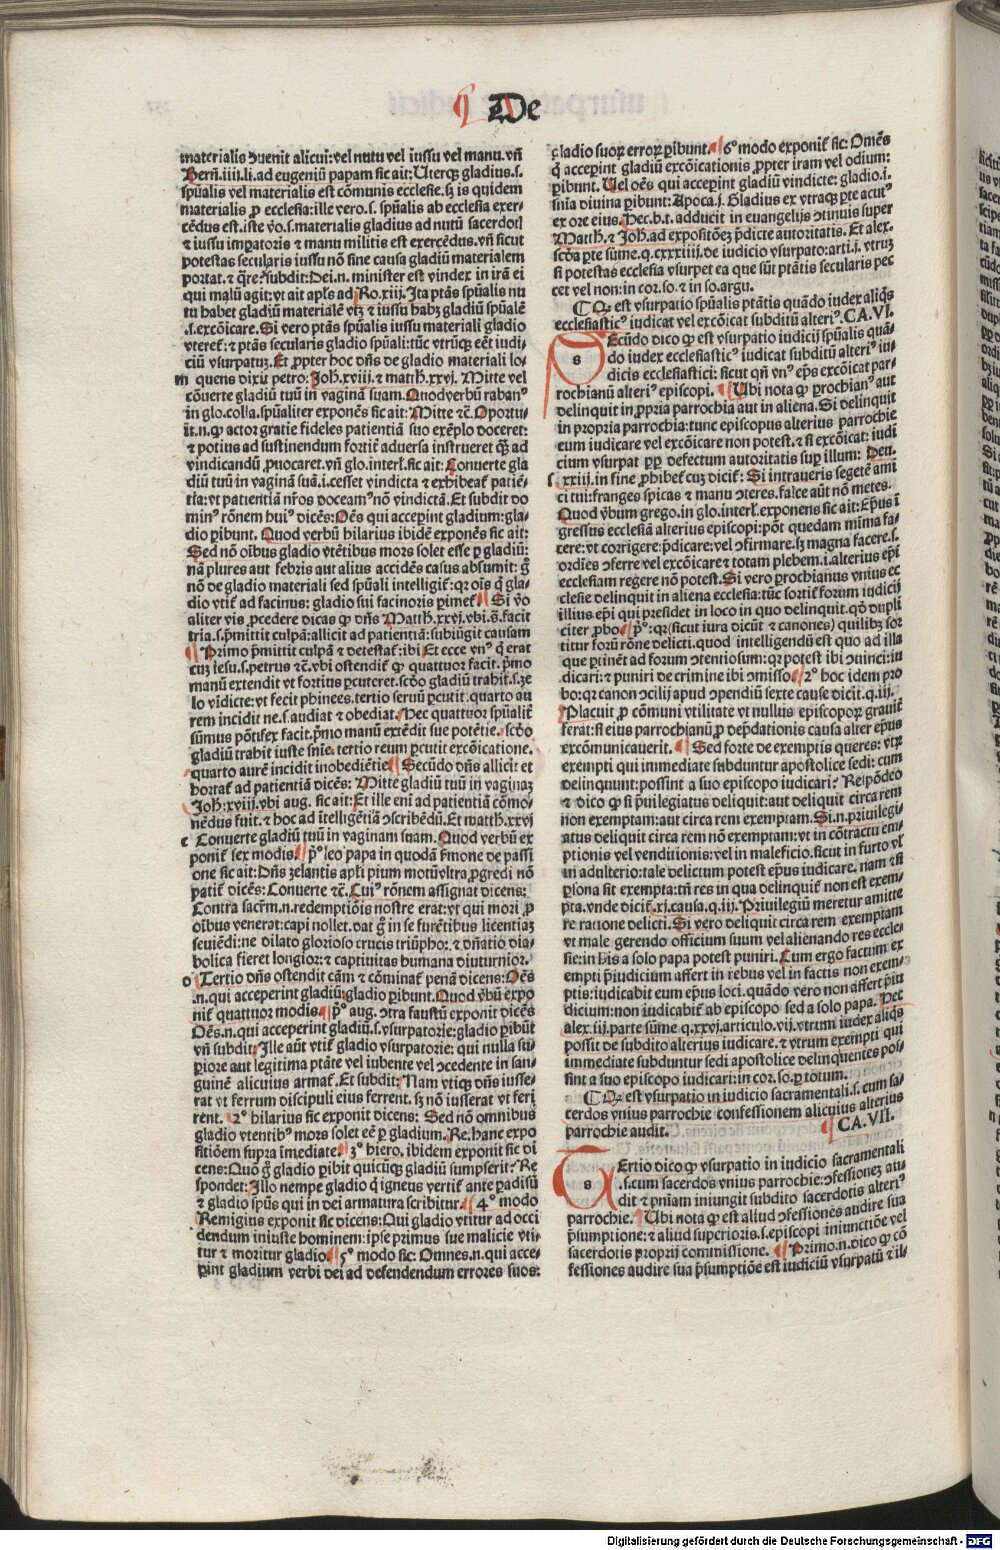 De
materialis ↄuenit alicui: vel nutu vel iussu vel manu. vñ
Berñ. iiij. li. ad eugeniū papam sic ait: Uterq; gladius .s.
spūalis vel materialis est cōmunis ecclesie. sꝫ is quidem
materialis ꝓ ecclesia: ille vero .s. spūalis ab ecclesia exer⸗
cēdus est. iste vo̊ .s. materialis gladius ad nutū sacerdotl
⁊ iussu impatoris ⁊ manu militis est exercēdus. vñ sicut
potestas secularis iussu nō sine causa gladiū materialem
portat. ⁊ q̄re? subdit: Dei .n. minister est vindex in irā ei
qui malū agit: vt ait apl's ad Ro. xiij. Ita ptās spūalis nu
tu habet gladiū materialē vtꝫ ⁊ iussu habꝫ gladiū spūalē
.s. excōicare. Si vero ptās spūalis iussu materiali gladio
vteret̄: ⁊ ptās secularis gladio spūali: tūc vtrūq; eēt iudi⸗
ciū vsurpatuꝫ. Et ꝓpter hoc dñs de gladio materiali lo⸗
m quens dixit petro: Joh̄. xviij. ⁊ matth̄. xxvj. Mitte vel
cōuerte gladiū tuū in vaginā suam. Quod verbū raban⁹
in glo. colla. spūaliter exponēs sic ait: Mitte ⁊c̄. Oportu⸗
it .n. ꝙ actor gratie fideles patientiā suo exēplo doceret:
⁊ potius ad sustinendum fortit̄ aduersa instrueret q̄ꝫ ad
vindicandū ꝓuocaret. vñ glo. interl̄. sic ait: Conuerte gla
diū tuū in vaginā suā .i. cesset vindicta ⁊ exhibeat̄ patiē⸗
tia: vt patientiā nr̄os doceam⁹ nō vindictā. Et subdit do
min⁹ rōnem hui⁹ dicēs: Oēs qui acceꝑint gladium: gla⸗
dio ꝑibunt. Quod verbū hilarius ibidē exponēs sic ait:
Sed nō oībus gladio vtētibus mors solet esse ꝑ gladiū:
nā plures aut febris aut alius accidēs casus absumit: g̊
nō de gladio materiali sed spūali intelligit̄: qꝛ oīs q̄ gla⸗
dio vtit̄ ad facinus: gladio sui facinoris ꝑimet̄. Si vo̊
aliter vis ꝓcedere dicas ꝙ dñs Matth̄. xxvj. vbi .s̄. facit
tria .s. p̄mittit culpā: allicit ad patientiā: subiūgit causam
Primo p̄mittit culpā ⁊ detestat̄: ibi Et ecce vn⁹ q̄ erat
cuꝫ iesu .s. petrus ⁊c̄. vbi ostendit̄ ꝙ quattuor facit. p̄mo
manū extendit vt fortius ꝑcuteret. scd̊o gladiū trahit .s. ze
lo vīdicte: vt fecit phinees. tertio seruū ꝑcutit. quarto au
rem incidit ne .s. audiat ⁊ obediat. Hec quattuor spūalit̄
sūmus pōtifex facit. p̄mo manū extēdit sue potētie. scd̊o
gladiū trahit iuste snīe. tertio reum ꝑcutit excōicatione.
quarto aurē incidit inobediētie. Secūdo dñs allicit et
hortat̄ ad patientiā dicēs: Mitte gladiū tuū in vaginaꝫ
Joh̄: xviij. vbi aug. sic ait: Et ille eni ad patientiā cōmo⸗
nēdus fuit. ⁊ hoc ad ītelligētiā ↄscribēdū. Et matth̄. xxvj
c Conuerte gladiū tuū in vaginam suam. Quod verbū ex
ponit̄ sex modis. p⁰ leo papa in quodā s̄mone de passi
one sic ait: Dñs zelantis apl'i pium motū vltra ꝓgredi nō
patit̄ dicēs: Conuerte ⁊c̄. Cui⁹ rōnem assignat dicens:
Contra sacr̄m .n. redemptiōis nostre erat: vt qui mori ꝓ
oībus venerat: capi nollet. dat g̊ in se furētibus licentiaꝫ
seuiēdi: ne dilato glorioso crucis triūpho: ⁊ dñatio dia⸗
bolica fieret longior: ⁊ captiuitas humana diuturnior.
o Tertio dñs ostendit cām ⁊ cōminat̄ penā dicens: Oēs
.n. qui acceperint gladiū: gladio ꝑibunt. Quod v̄bū expo
nit̄ quattuor modis. p⁰ aug. ↄtra faustū exponit dicēs
Oēs .n. qui acceperint gladiū .s. vsurpatorie: gladio ꝑibūt
vñ subdit: Ille aūt vtit̄ gladio vsurpatorie: qui nulla su⸗
ꝑiore aut legitima ptāte vel iubente vel ↄcedente in san⸗
guinē alicuius armat̄. Et subdit: Nam vtiq; dñs iusse⸗
rat vt ferrum discipuli eius ferrent. sꝫ nō iusserat vt feri
rent. 2⁰ hilarius sic exponit dicens: Sed nō omnibus
gladio vtentib⁹ mors solet eē ꝑ gladium. Re. hanc expo
sitiōem supra īmediate. 3⁰ hiero. ibidem exponit sic di
cens: Quo g̊ gladio ꝑibit quicūq; gladiū sumpserit? Re
spondet: Illo nempe gladio q̄ igneus vertit̄ ante padisū
⁊ gladio spūs qui in dei armatura scribitur. 4⁰ modo
Remigius exponit sic dicens: Qui gladio vtitur ad occi
dendum iniuste hominem: ipse primus sue malicie vti⸗
tur ⁊ moritur gladio. 5⁰ modo sic: Omnes .n. qui acce⸗
ꝑint gladium verbi dei ad defendendum errores suos:
gladio suoꝝ erroꝝ ꝑibunt. 6⁰ modo exponit̄ sic: Omēs
q̄ acceꝑint gladiū excōicationis ꝓpter iram vel odium:
ꝑibunt. Uel oēs qui acceꝑint gladiū vindicte: gladio .i.
snīa diuina ꝑibunt: Apoca. j. Gladius ex vtraq; ꝑte acut⁹
ex ore eius. Hec .b. t. adducit in euangelijs ↄtinuis super
Matth̄. ⁊ Joh̄. ad expositōeꝫ p̄dicte autoritatis. Et alex.
scd̊a ꝑte sūme. q. cxxxiiij. de iudicio vsurpato: arti. j. vtruꝫ
si potestas ecclesia vsurpet ea que sūt ptātis secularis pec
cet vel non: in cor. so. ⁊ in so. argu.
Qꝛ est vsurpatio spūalis ptātis quādo iudex aliq̄s
ecclesiastic⁹ iudicat vel excōicat subditū alteri⁹. CA. VI.
s Ecūdo dico ꝙ est vsurpatio iudicij spūalis quā⸗
do iudex ecclesiastic⁹ iudicat subditū alteri⁹ iu⸗
dicis ecclesiastici: sicut qñ vn⁹ ep̄s excōicat par⸗
rochianū alteri⁹ episcopi. Ubi nota ꝙ ꝑochian⁹ aut
delinquit in ꝓpria parrochia aut in aliena. Si delinquit
in propria parrochia: tunc episcopus alterius parrochie
eum iudicare vel excōicare non potest. ⁊ si excōicat: iudi
cium vsurpat ꝓꝑ defectum autoritatis suꝑ illum: Deu.
xxiij. in fine ꝓhibet̄ cuꝫ dicit̄: Si intraueris segetē ami
ci tui: franges spicas ⁊ manu ↄteres. falce aūt nō metes.
Quod v̄bum grego. in glo. interl̄. exponens sic ait: Ep̄us ī
gressus ecclesiā alterius episcopi: pōt quedam mima fa⸗
cere: vt corrigere: p̄dicare: vel ↄfirmare. sꝫ magna facere .s.
ordies ↄferre vel excōicare ⁊ totam plebem .i. alterius ep̄i
ecclesiam regere nō potest. Si vero ꝑochianus vnius ec
clesie delinquit in aliena ecclesia: tūc sortit̄ forum iudicij
illius ep̄i qui presidet in loco in quo delinquit. qd̊ dupli
citer ꝓbo. p⁰: qꝛ (sicut iura dicūt ⁊ canones) quilibꝫ sor
titur forū rōne delicti. quod intelligendū est quo ad illa
que ꝑtinēt ad forum ↄtentiosum: qꝛ potest ibi ↄuinci: iu
dicari: ⁊ puniri de crimine ibi ↄmisso. 2⁰ hoc idem pro
bo: qꝛ canon ↄcilij apud ↄpendiū sexte cause dicit. q. iij.
Placuit ꝓ cōmuni vtilitate vt nullus episcopoꝝ grauit̄
ferat: si eius parrochianū ꝓ dep̄dationis causa alter ep̄us
excōmunicauerit. Sed forte de exemptis queres: vtꝝ
exempti qui immediate subduntur apostolice sedi: cum
delinquunt: possint a suo episcopo iudicari? Respōdeo
⁊ dico ꝙ si p̄uilegiatus deliquit: aut deliquit circa rem
non exemptam: aut circa rem exemptam. Si .n. priuilegi
atus deliquit circa rem nō exemptam: vt in cōtractu em⸗
ptionis vel venditionis: vel in maleficio. sicut in furto vl
in adulterio: tale delictum potest ep̄us iudicare. nam ⁊ si
ꝑsona sit exempta: tn̄ res in qua delinquit̄ non est exem
pta. vnde dicit̄. xj. causa. q. iij. Priuilegiū meretur amitte
re ratione delicti. Si vero deliquit circa rem exemptam
vt male gerendo officium suum vel alienando res eccle⸗
sie: in his a solo papa potest puniri. Cum ergo factum ex
empti p̄iudicium assert in rebus vel in factis non exem⸗
ptis: iudicabit eum ep̄us loci. quādo vero non assert p̄iu
dicium: non iudicabit̄ ab episcopo sed a solo papa. Hec
alex. iij. parte sūme. q. xxvj. articulo. vij. vtrum iudex aliq̄s
possit de subdito alterius iudicare. ⁊ vtrum exempti qui
immediate subduntur sedi apostolice delinquentes pos⸗
sint a suo episcopo iudicari: in cor. so. ꝑ totum.
Qꝛ est vsurpatio in iudicio sacramentali .s. cum sa⸗
cerdos vnius parrochie confessionem alicuius alterius
parrochie audit. CA. VII.
s Ertio dico ꝙ vsurpatio in iudicio sacramentali
.s. cum sacerdos vnius parrochie: ↄfessioneꝫ au⸗
dit ⁊ pn̄iam iniungit subdito sacerdotis alteri⁹
parrochie. Ubi nota ꝙ est aliud ↄfessiones audire sua
p̄sumptione: ⁊ aliud superioris .s. episcopi iniunctiōe vel
sacerdotis proprij commissione. Primo .n. dico ꝙ cō
fessiones audire sua p̄sumptiōe est iudiciū vsurpatū ⁊ il⸗
Digitalisierung gefördert durch die Deutsche Forschungsgemeinschaft - DFG